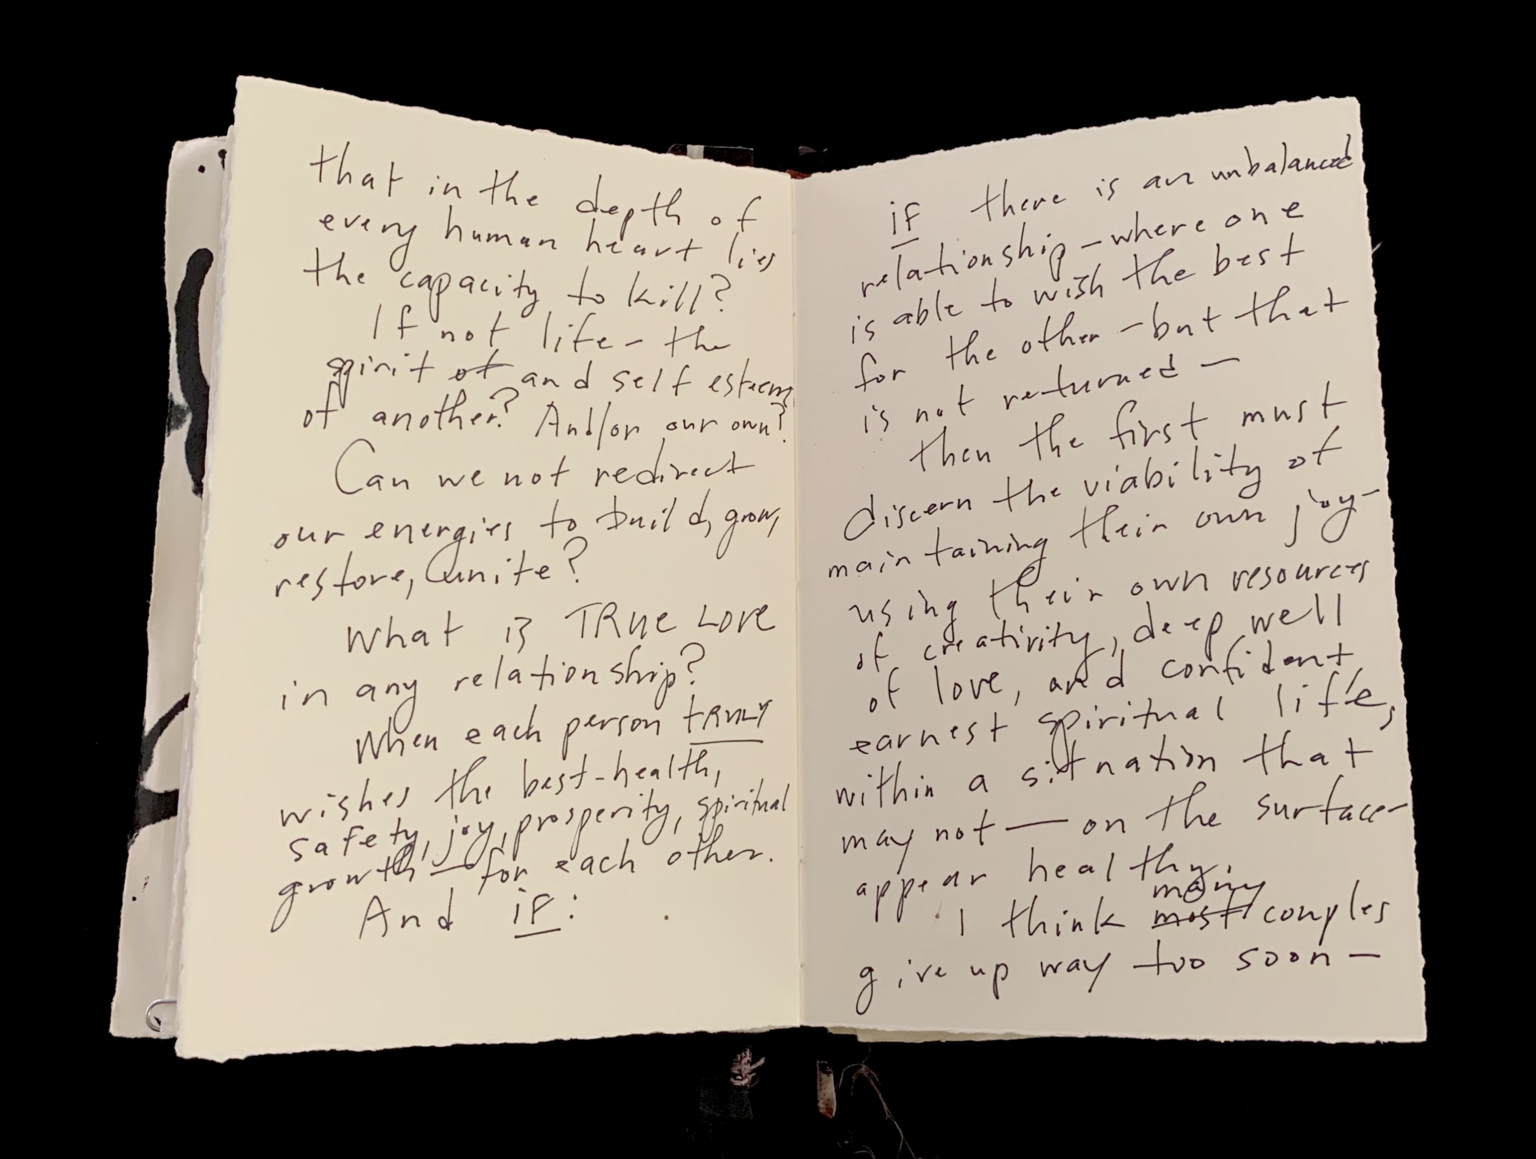 that in the depth of
every human heart lies
the capacity to kill?
If not life – the
spirit of and self esteem
of another? And/or our own?
Can we not redirect
our energies to build, grow,
restore, unite?
What is TRUE LOVE
in any relationship?
When each person TRULY
wishes the best-health,
safety, joy, prosperity, spiritual
growth — for each other.
And IF:
IF there is an unbalanced
relationship – where one
is able to wish the best
for the other – but that
is not returned –
then the first must
discern the viability of
maintaining their own joy –
using their own resources
of creativity, deep well
of love, and confident,
earnest spiritual life,
within a situation that
may not — on the surface –
appear healthy.
I think most many couples
give up way too soon –